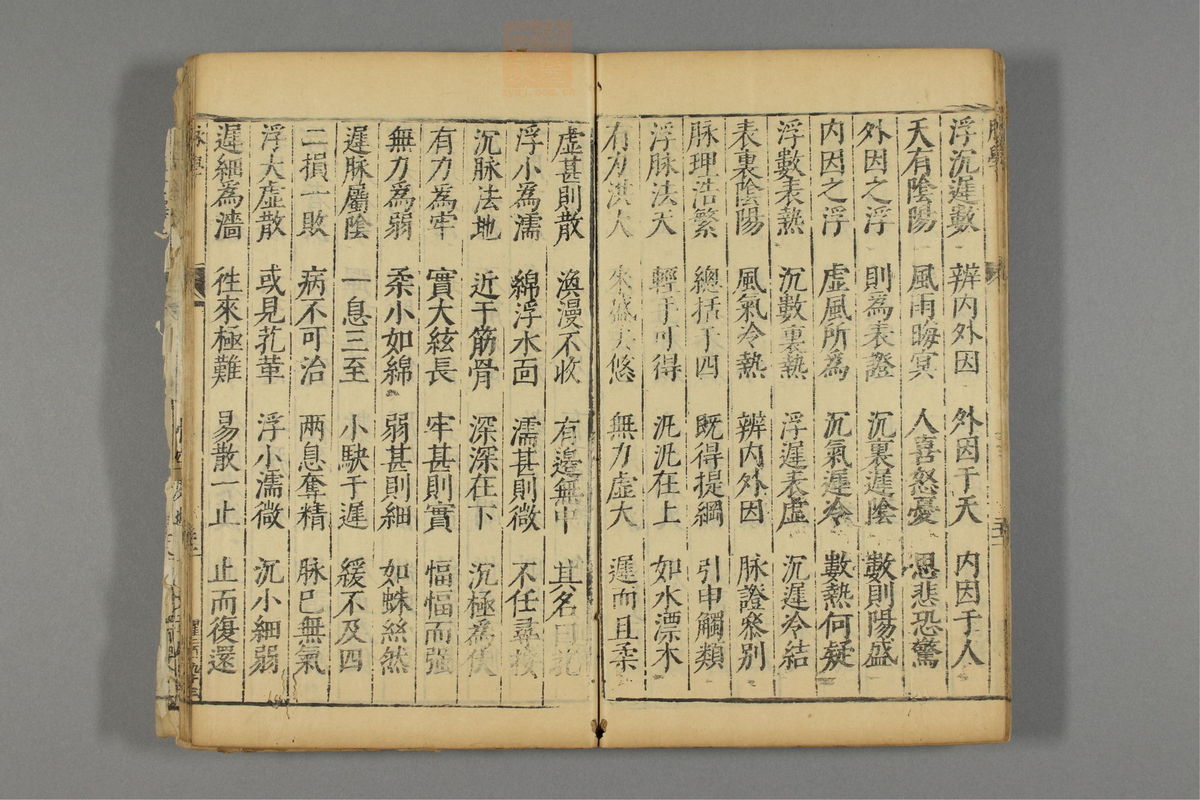 浮沉遲數 辨內外因 外因于天 內因于人
天有陰陽 風雨晦冥 人喜怒憂 思悲恐驚
外因之浮 則為表證 沉裏遲陰 數則陽盛
內因之浮 虛風所為 沉氣遲冷 數熱何疑
浮數表熱 沉數裏熱 浮遲表虛 沉遲冷結
表裏陰陽 風氣冷熱 辨內外因 脉證叅別
脉理浩繁 總括于四 既得提綱 引申觸類
浮脉法天 輕手可得 汎汎在上 如水漂木
有力洪大 來盛去悠 無力虛大 遲而且柔
虛甚則散 渙漫不收 有邊無中 其名曰芤
浮小為濡 綿浮水面 濡甚則微 不任尋按
沉脉法地 近于筋骨 深深在下 沉極為伏
有力為牢 實大絃長 牢甚則實 愊愊而强
無力為弱 柔小如綿 弱甚則細 如蛛絲然
遲脉屬陰 一息三至 小駃于遲 緩不及四
二損一敗 病不可治 兩息奪精 脉已無氣
浮大虛散 或見芤革 浮小濡微 沉小細弱
遲細為濇 徃來極難 易散一止 止而復還
脉學